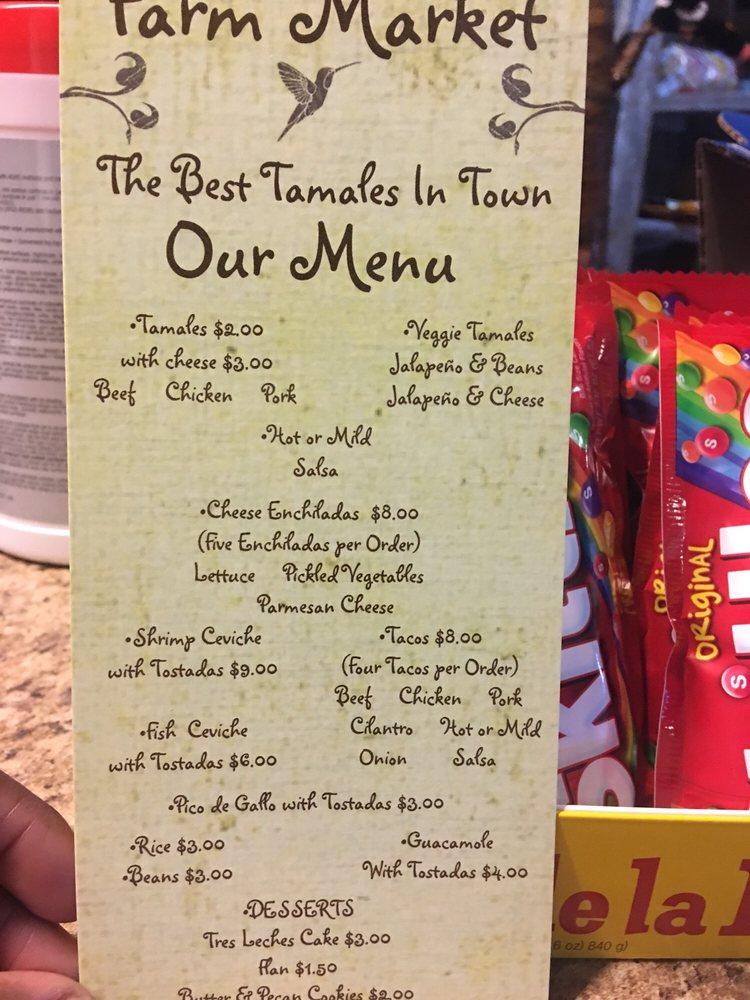 Farm Market
The Best Tamales In Town
Our Menu
•Tamales $2.00
with cheese $3.00
Beef Chicken Pork
•Veggie Tamales
Jalapeño & Beans
Jalapeño & Cheese
•Hot or Mild
Salsa
•Cheese Enchiladas $8.00
(Five Enchiladas per Order)
Lettuce Pickled Vegetables
Parmesan Cheese
•Shrimp Ceviche
with Tostadas $9.00
•Tacos $8.00
(Four Tacos per Order)
Beef Chicken Pork
Cilantro Hot or Mild
Onion Salsa
•Fish Ceviche
with Tostadas $6.00
•Pico de Gallo with Tostadas $3.00
•Rice $3.00
•Beans $3.00
•Guacamole
With Tostadas $4.00
•DESSERTS
Tres Leches Cake $3.00
Flan $1.50
Butter & Pecan Cookies $2.00
ORiGiNAL
e la
6 oz) 840 g)